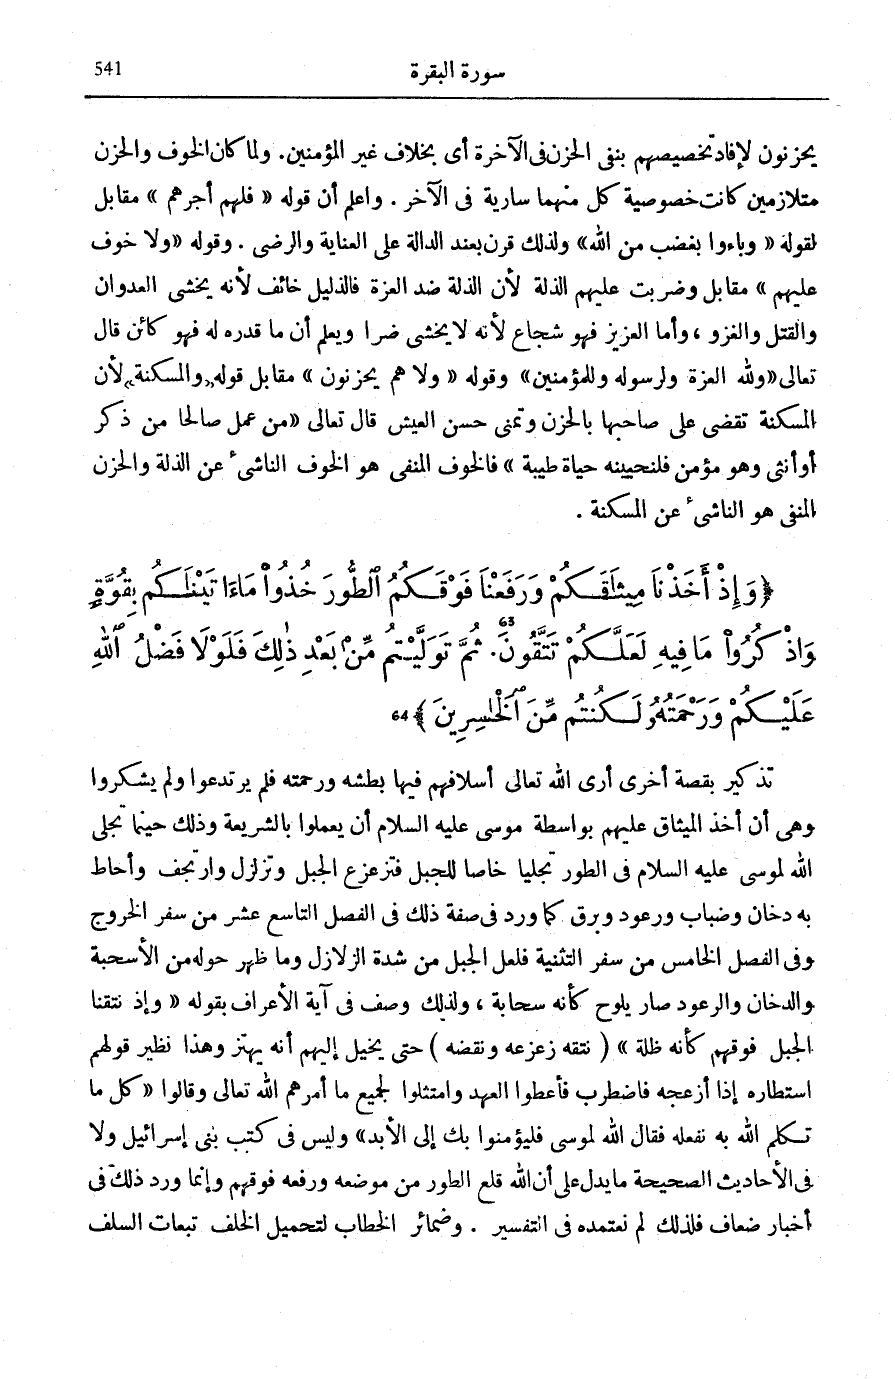 541
سورة البقرة
يحزنون لإفاد تخصيصهم بنفى الحزن فى الآخرة أى بخلاف غير المؤمنين. ولما كان الخوف والحزن
متلازمين كانت خصوصية كل منهما سارية فى الآخر . واعلم أن قوله « فلهم أجرهم » مقابل
لقوله « وباءوا بغضب من الله» ولذلك قرن بعند الدالة على العناية والرضى . وقوله «ولا خوف
عليهم » مقابل وضربت عليهم الذلة لأن الذلة ضد العزة فالذليل خائف لأنه يخشى العدوان
والقتل والغزو ، وأما العزيز فهو شجاع لأنه لا يخشى ضرا ويعلم أن ما قدره له فهو كائن قال
تعالى «ولله العزة ولرسوله وللمؤمنين» وقوله « ولا هم يحزنون » مقابل قوله «والمسكنة» لأن
المسكنة تقضى على صاحبها بالحزن وتمنى حسن العيش قال تعالى «من عمل صالحا من ذكر
أو أنثى وهو مؤمن فلنحيينه حياة طيبة » فالخوف المنفى هو الخوف الناشىء عن الذلة والحزن
المنفى هو الناشىء عن المسكنة .
﴿وَإِذْ أَخَذْنَا مِيثَٰقَكُمْ وَرَفَعْنَا فَوْقَكُمُ ٱلطُّورَ خُذُوا۟ مَا ءَاتَيْنَٰكُم بِقُوَّةٍ
وَاذْكُرُوا۟ مَا فِيهِ لَعَلَّكُمْ تَتَّقُونَ 63 ثُمَّ تَوَلَّيْتُم مِّنۢ بَعْدِ ذَٰلِكَ فَلَوْلَا فَضْلُ ٱللَّهِ
عَلَيْكُمْ وَرَحْمَتُهُۥ لَكُنتُم مِّنَ ٱلْخَٰسِرِينَ﴾ 64
تذكير بقصة أخرى أرى الله تعالى أسلافهم فيها بطشه ورحمته فلم يرتدعوا ولم يشكروا
وهى أن أخذ الميثاق عليهم بواسطة موسى عليه السلام أن يعملوا بالشريعة وذلك حينما تجلى
الله لموسى عليه السلام فى الطور تجليا خاصا للجبل فتزعزع الجبل وتزلزل وارتجف وأحاط
به دخان وضباب ورعود وبرق كما ورد فى صفة ذلك فى الفصل التاسع عشر من سفر الخروج
وفى الفصل الخامس من سفر التثنية فلعل الجبل من شدة الزلازل وما ظهر حوله من الأسحبة
والدخان والرعود صار يلوح كأنه سحابة ، ولذلك وصف فى آية الأعراف بقوله « وإذ نتقنا
الجبل فوقهم كأنه ظلة » ( نتقه زعزعه ونقضه ) حتى يخيل إليهم أنه يهتز وهذا نظير قولهم
استطاره إذا أزعجه فاضطرب فأعطوا العهد وامتثلوا لجميع ما أمرهم الله تعالى وقالوا «كل ما
تكلم الله به نفعله فقال الله لموسى فليؤمنوا بك إلى الأبد» وليس فى كتب بنى إسرائيل ولا
فى الأحاديث الصحيحة ما يدل على أن الله قلع الطور من موضعه ورفعه فوقهم وإنما ورد ذلك فى
أخبار ضعاف فلذلك لم نعتمده فى التفسير . وضمائر الخطاب لتحميل الخلف تبعات السلف